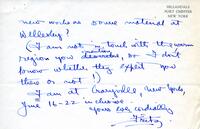 HILLANDALE
PORT CHESTER
NEW YORK
new works or some material at
Wellesley?
(I am not in touch with the women
region you describe, or I don't
know whether they expect you
there or not!)
I am at Craryville, New York,
June 16-22 inclusive.
Yours ever cordially